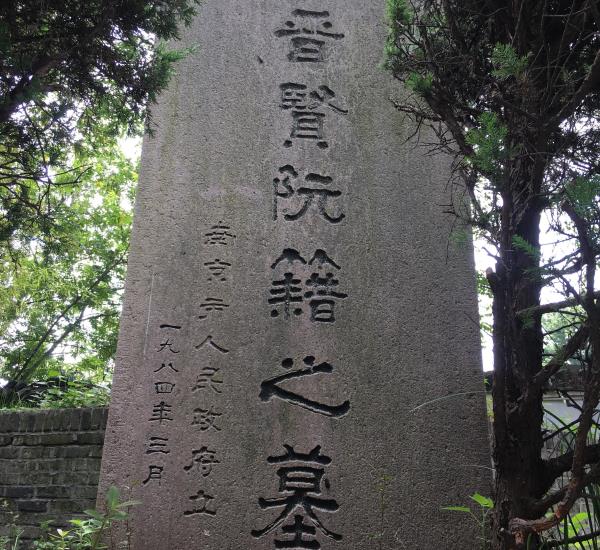 晋賢阮籍之墓
南京市人民政府立
一九八四年三月